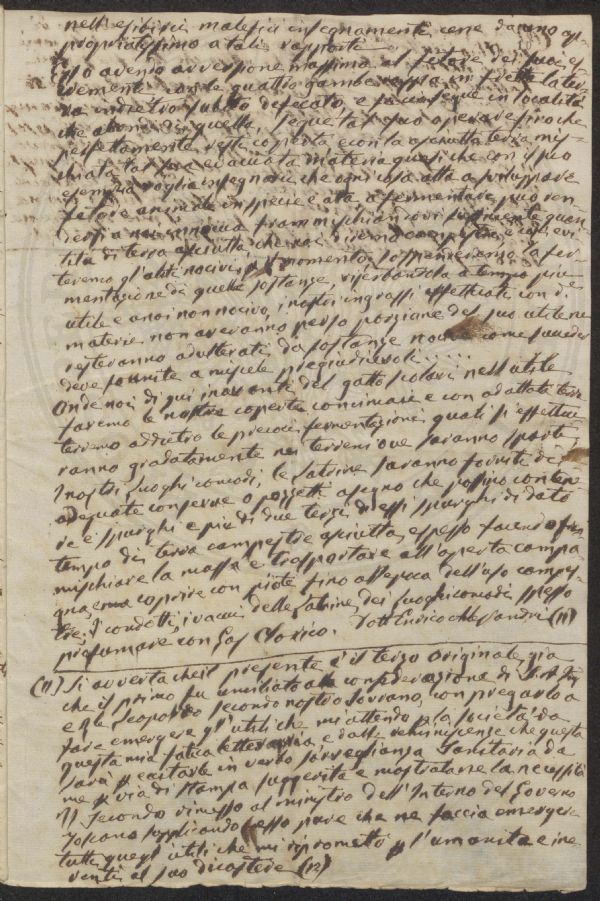 nell'esibirci malefici insegnamenti, cene danno ap
propriatissimo a tali rapporti
Esso avendo avversione massima al fetore dei suoi es
crementi con le quattro gambe raspa
va indietro subito defecato, e fa
che abondi di quella, segue tal suo operare finoche
perfettamente resti coperta e con la asciutta terra mis
chiata tal sua evacuata materia quasi che con il suo
esempio voglia insegnarci che ogni cosa atta a sviluppare
fetore animale in specie e atta a fermentare può ren
dersi innocua frammischiandovi sufficiente quan
tità di terra asciutta, che noi
teremo gl'aliti nocivi, momento sospenderemo la fer
mentazione di quelle sostanze, riserbandola a tempo più
utile e a noi non nocivo, i nostri ingrassi effettuati con de
materie, non averanno perso porzione del suo utile ne
resteranno adulterati da sostanze nuove come succeder
deve fornite a miscele pregiudicevoli.....
Onde noi di qui inavanti del gatto scolari nell'utile
faremo le nostre coperte concimaie e con adattata terra
terremo addietro le precoci fermentazioni quali si effettue
ranno gradatamente nei terreni ove saranno sparte,
I nostri luoghi comodi, le Latrine saranno forniti di
adequate conserve o pozzetti a segno che possino contene
re e spurghi e più di due terzi di essi spurghi di dato
tempo di terra campestre asciutta, e spesso facendo fra
mischiare la massa e trasportare all'aperta campa
gna, e ma coprire con piote fino all'epoca dell'uso campes
tre, I condotti, i vacui delle Latrine, dei luoghi comodi spesso
profumare con Gas Clorico. Dott Enrico Alessandri (11)
(11) Si avverta che il presente è il terzo Originale, gia
che il primo fu umiliato alla considerazione di S. A. I.
e R. le Leopoldo secondo nostro Sovrano, con pregarlo a
fare emergere gl'utili che mi attendo p. la società da
questa mia fatica letteraria, e dalle reminiscenze che questa
sarà p. ecitarle in verso sorveglianza Sanitaria da
me p. via di stampa suggerita e mostratane la necessità
Il Secondo rimesso al ministro dell'Interno del Governo
Toscano supplicando esso pure che ne faccia emergere
tutti quegl'utili che mi riprometto p. l'umanità e ine
renti al suo dicastero (12)